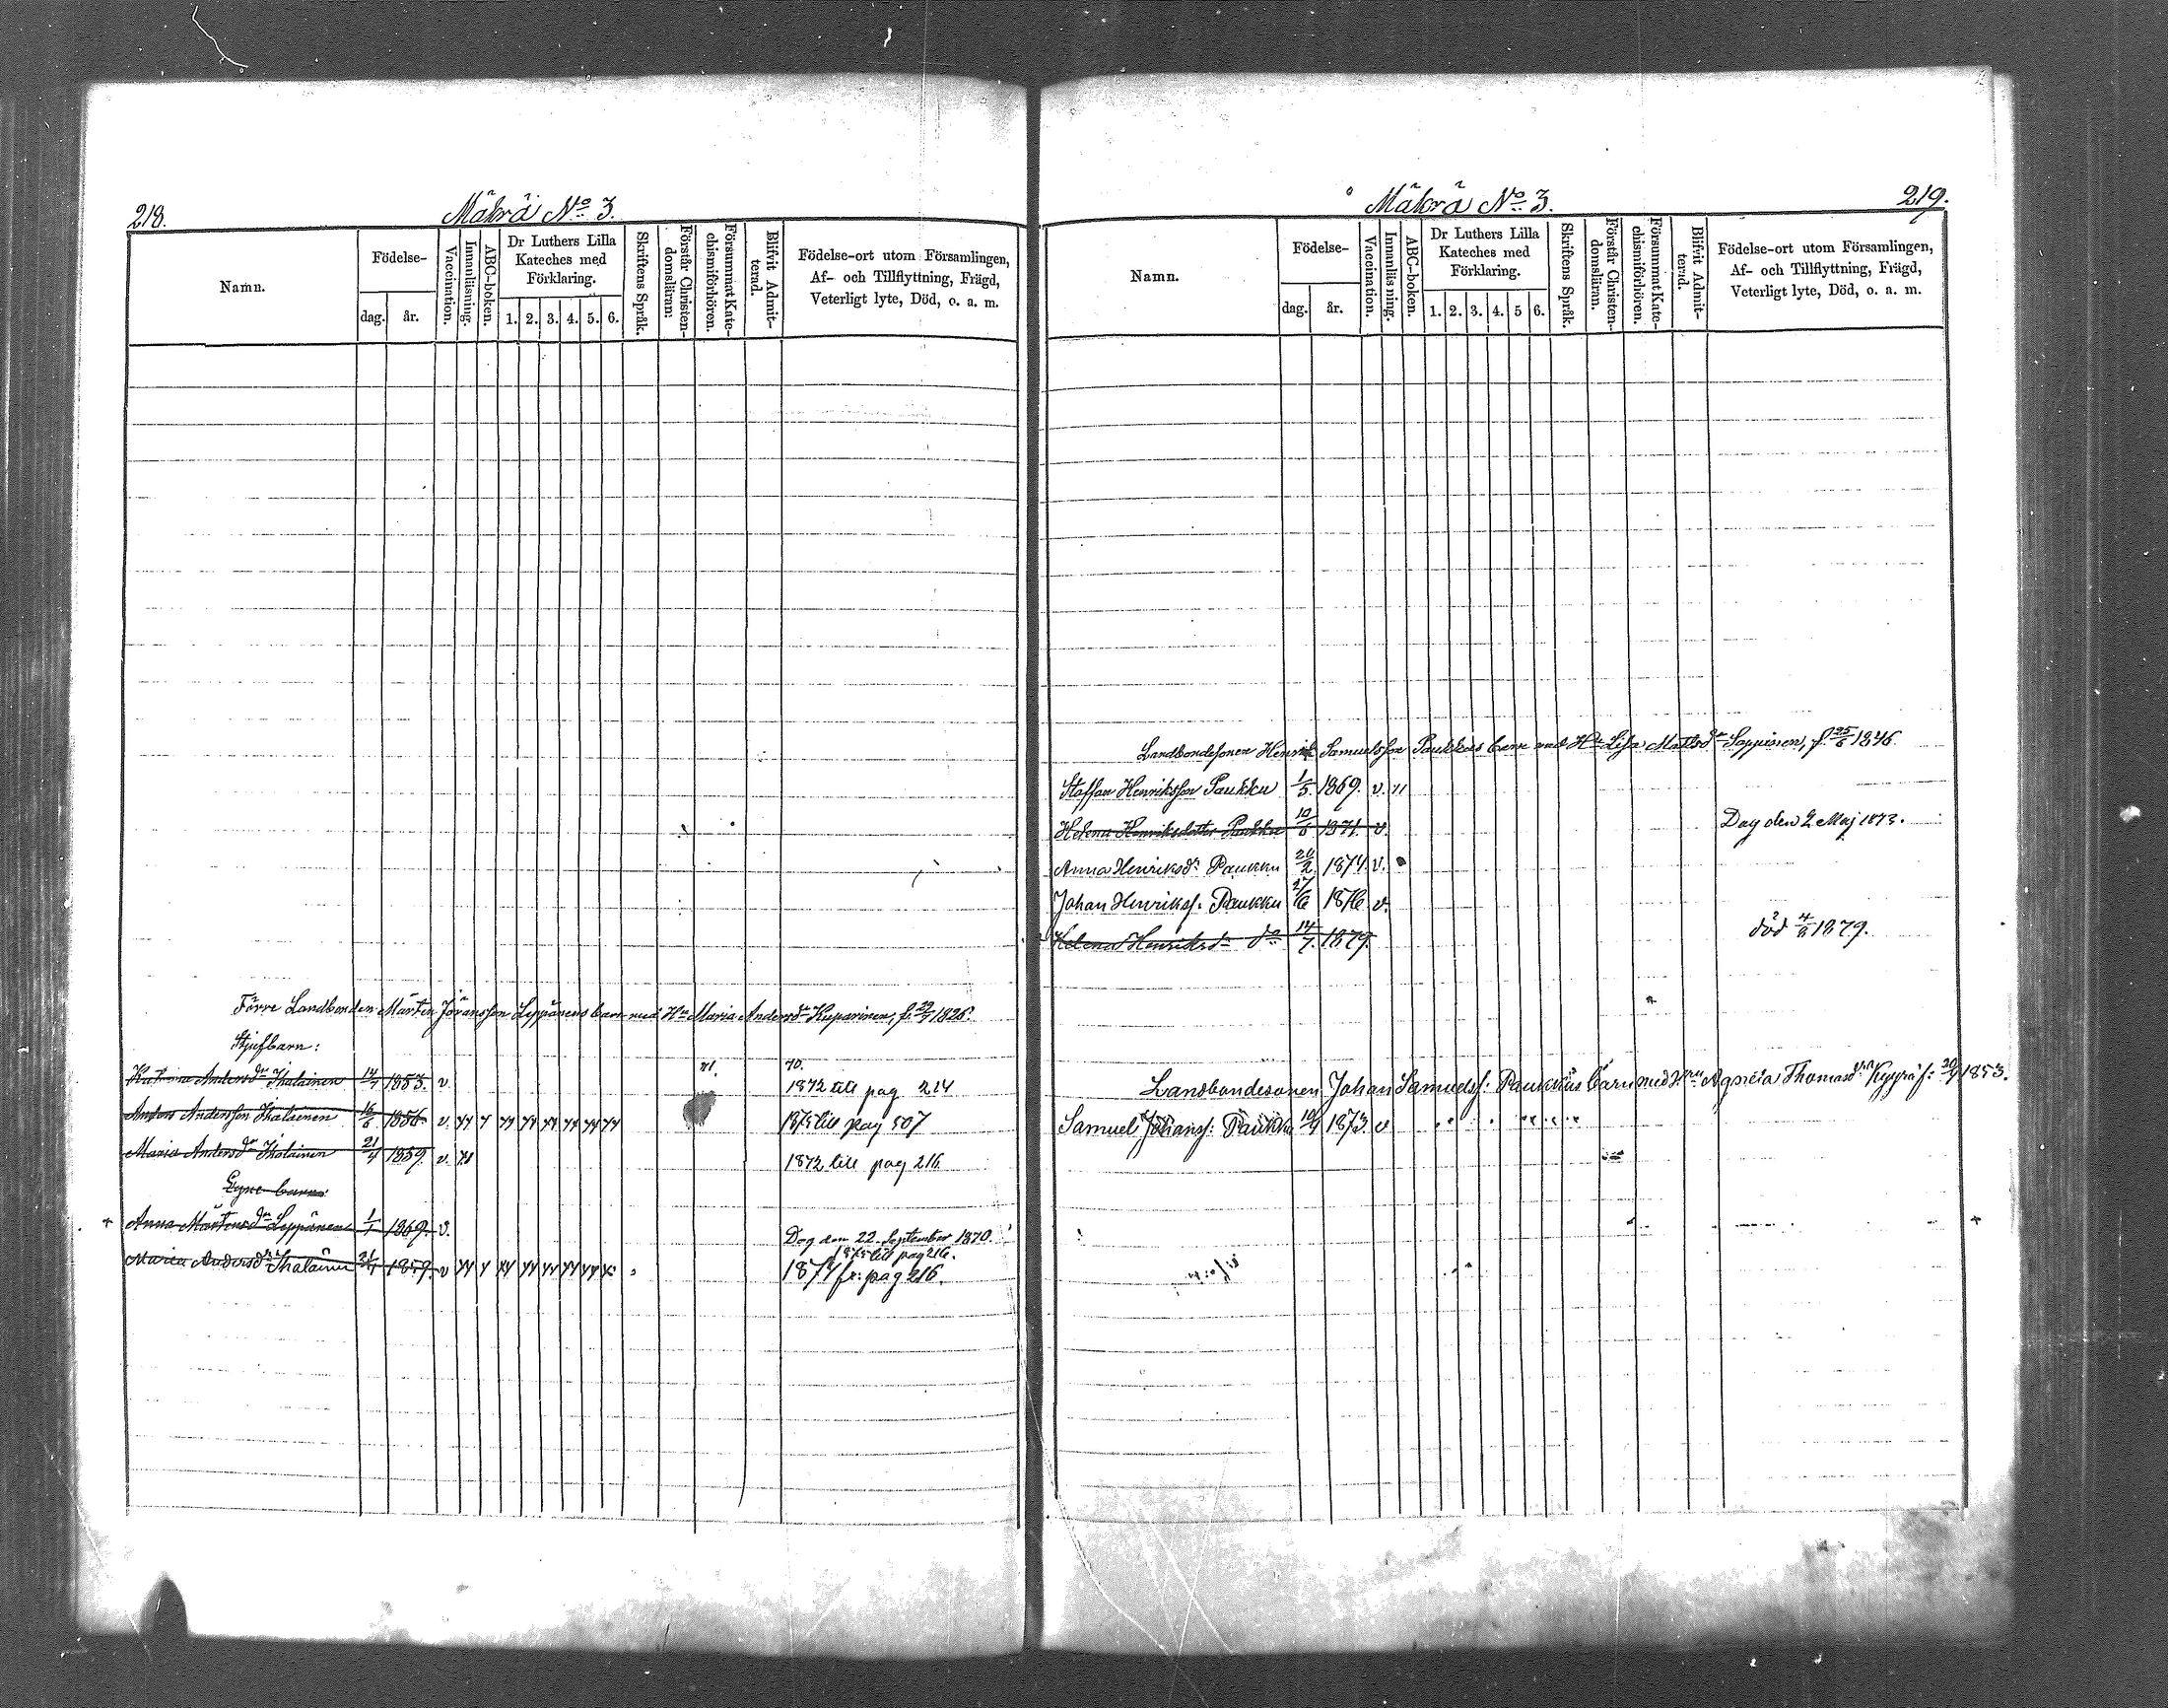 218.
Mäkrä No 3.
Namn.
Födelse-
dag.
år.
Vaccination.
Innanläsning.
ABC-boken.
Dr Luthers Lilla
Kateches med
Förklaring.
1. 2. 3. 4. 5. 6.
Skriftens Språk.
Förstår Christen-
domsläran:
Försummat Kate-
chismiförhören.
Blifvit Admit-
terad.
Födelse-ort utom Församlingen,
Af- och Tillflyttning, Frägd,
Veterligt lyte, Död, o. a. m.
Förre Landbonden Mårten Jöransson Leppänens barn med Hu Maria Andersdr Kuparinen, f. 29/7 1826.
Stjufbarn:
71. 70.
Andersdr Ihalainen 14/7 1853. v. 1872 till pag 214
Anders Andersson Ihalainen 16/6 1856 v. 1875 till pag 507
Maria Andersdr Ihalainen 21/4 1859. v. 1872 till pag 216
Egne barn:
Anna Mårtensdr Leppänen 1/1 1869. v. Dog den 22 September 1870.
1875 till pag 216.
Maria Andersdr Ihalainen 21/4 1859. v 1874 fr: pag 216.
Mäkrä No 3.
219.
Namn.
Födelse-
dag.
år.
Vaccination.
Innanläsning.
ABC-boken.
Dr Luthers Lilla
Kateches med
Förklaring.
1. 2. 3. 4. 5 6.
Skriftens Språk.
Förstår Christen-
domsläran.
Försummat Kate-
chismiförhören.
Blifvit Admit-
terad.
Födelse-ort utom Församlingen,
Af- och Tillflyttning, Frägd,
Veterligt lyte, Död, o. a. m.
Landbondesonen Henrik Samuelsson Paukkus barn med Hu Lisa Mattsdr Soppinen, f. 25/6 1846
Staffan Henriksson Paukku 1/5 1869. v. 11
Helena Henriksdotter Paukku 10/6 1871. v. Dog den 2 Maj 1873.
Anna Henriksdr Paukku 20/2 1874. v.
Johan Henrikss. Paukku 27/6 1876 v.
Helena Henriksdr do 14/7 1879. död 4/8 1879.
Landbondesonen Johan Samuelss: Paukkus barn med Hru Agneta Thomasdr Kyyrä f: 20/7 1853.
Samuel Johanss: Paukku 10/4 1873. v